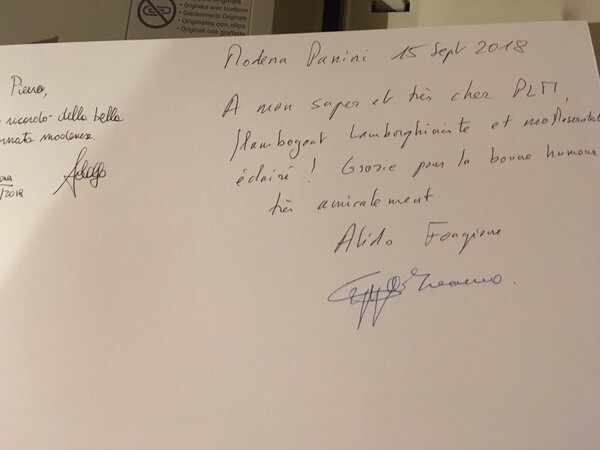 • Originaux avec trombone
• Geklammerte Originale
• Originales con clips
• Originali con graffette
Piero,
ricordo della bella
modenese.
/2018
Modena Panini 15 Sept 2018
A mon super et très cher PLM,
flamboyant Lamborghiniste et
éclairé ! Grazie pour la bonne humeur
très amicalement
Alido